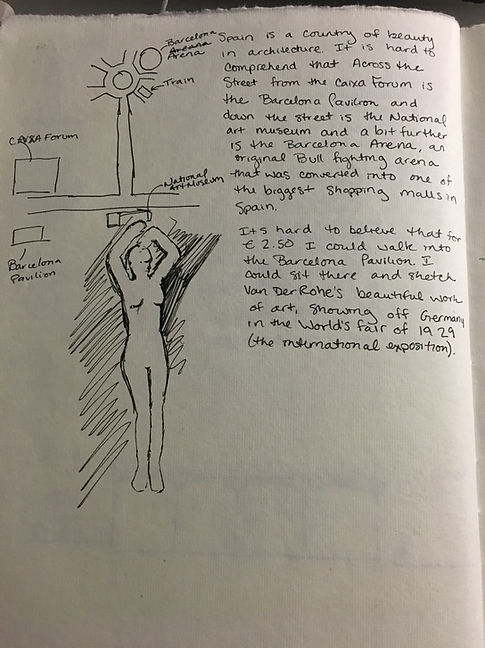 Barcelona
Areana
Arena
Train
CAIXA Forum
National
Art Museum
Barcelona
Pavilion
Spain is a country of beauty
in architecture. It is hard to
comprehend that Across the
Street from the Caixa Forum is
the Barcelona Pavilion and
down the street is the National
art museum and a bit further
is the Barcelona Arena, an
original Bull fighting arena
that was converted into one of
the biggest shopping malls in
Spain.
Its hard to believe that for
€ 2.50 I could walk into
the Barcelona Pavilion. I
could sit there and sketch
Van Der Rohe's beautiful work
of art, showing off Germany
in the World's fair of 1929
(the international exposition).